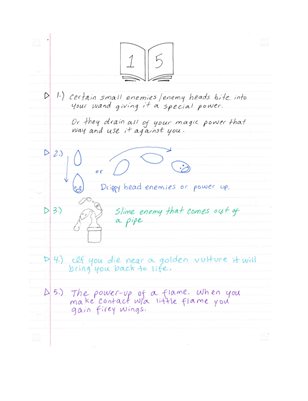 1 5
1.) Certain small enemies/enemy heads bite into
your wand giving it a special power.
Or they drain all of your magic power that
way and use it against you.
2.) or
Drippy head enemies or power up.
3.) Slime enemy that comes out of
a pipe
4.) If you die near a golden vulture it will
bring you back to life.
5.) The power-up of a flame. When you
make contact w/a little flame you
gain firey wings.